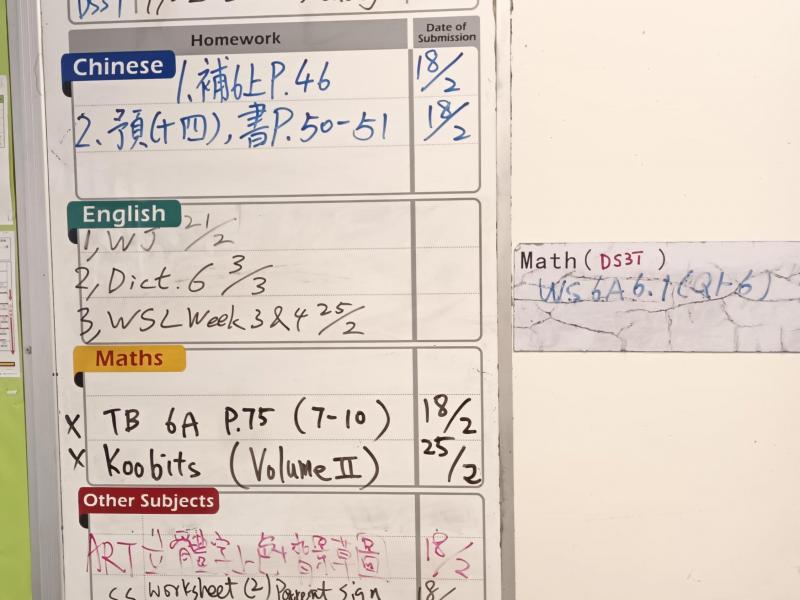 Homework
Date of Submission
Chinese
1.補6上P.46 18/2
2.預(十四),書P.50-51 18/2
English
1, WJ 21/2
2, Dict. 6 3/3
3, WSL Week 3 & 4 25/2
Maths
x TB 6A P.75 (7-10) 18/2
x Koobits (Volume II) 25/2
Other Subjects
ART 立體 草圖 18/2
SS Worksheet (2) Parent sign 18/
Math ( DS3T )
WS 6A 6.1 (Q1-6)